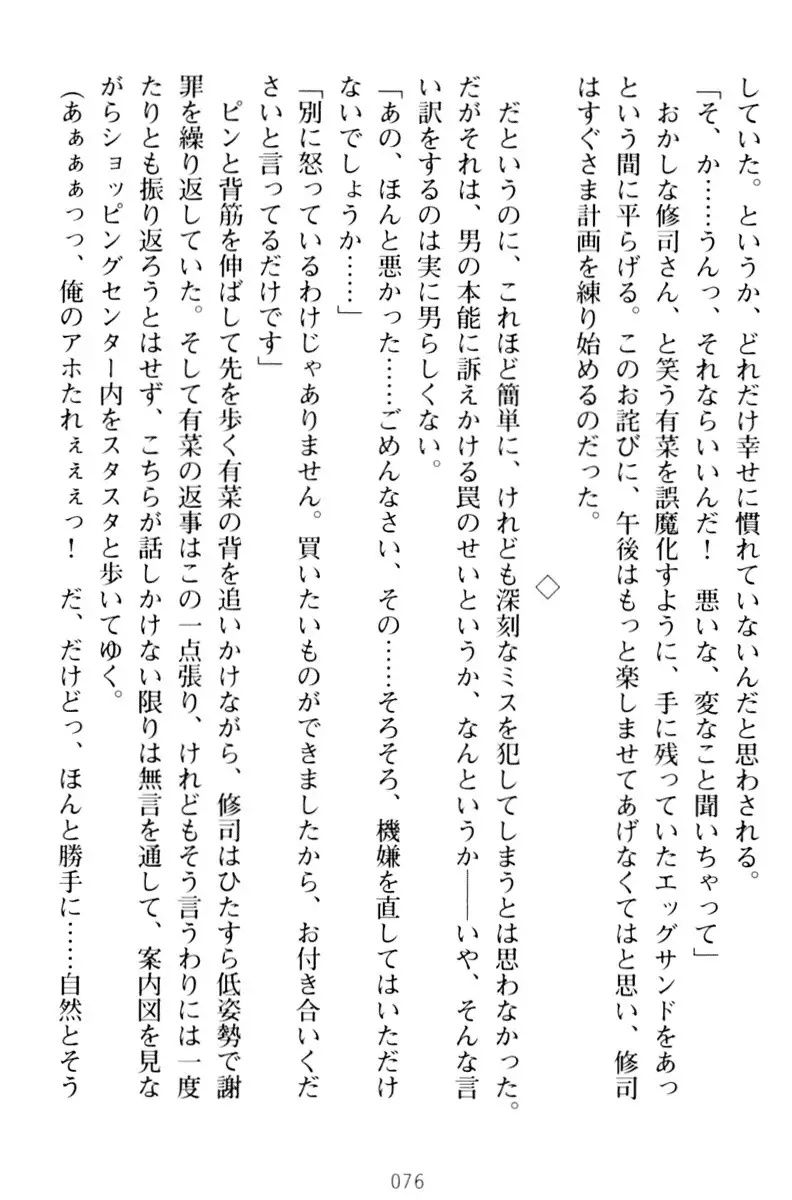 していた。というか、どれだけ幸せに慣れていないんだと思わされる。
「そ、か……うんっ、それならいいんだ！　悪いな、変なこと聞いちゃって」
　おかしな修司さん、と笑う有菜を誤魔化すように、手に残っていたエッグサンドをあっ
という間に平らげる。このお詫びに、午後はもっと楽しませてあげなくてはと思い、修司
はすぐさま計画を練り始めるのだった。
◇
　だというのに、これほど簡単に、けれども深刻なミスを犯してしまうとは思わなかった。
だがそれは、男の本能に訴えかける罠のせいというか、なんというか――いや、そんな言
い訳をするのは実に男らしくない。
「あの、ほんと悪かった……ごめんなさい、その……そろそろ、機嫌を直してはいただけ
ないでしょうか……」
「別に怒っているわけじゃありません。買いたいものができましたから、お付き合いくだ
さいと言ってるだけです」
　ピンと背筋を伸ばして先を歩く有菜の背を追いかけながら、修司はひたすら低姿勢で謝
罪を繰り返していた。そして有菜の返事はこの一点張り、けれどもそう言うわりには一度
たりとも振り返ろうとはせず、こちらが話しかけない限りは無言を通して、案内図を見な
がらショッピングセンター内をスタスタと歩いてゆく。
（あぁぁぁっっ、俺のアホたれぇぇぇっ！　だ、だけどっ、ほんと勝手に……自然とそう
076